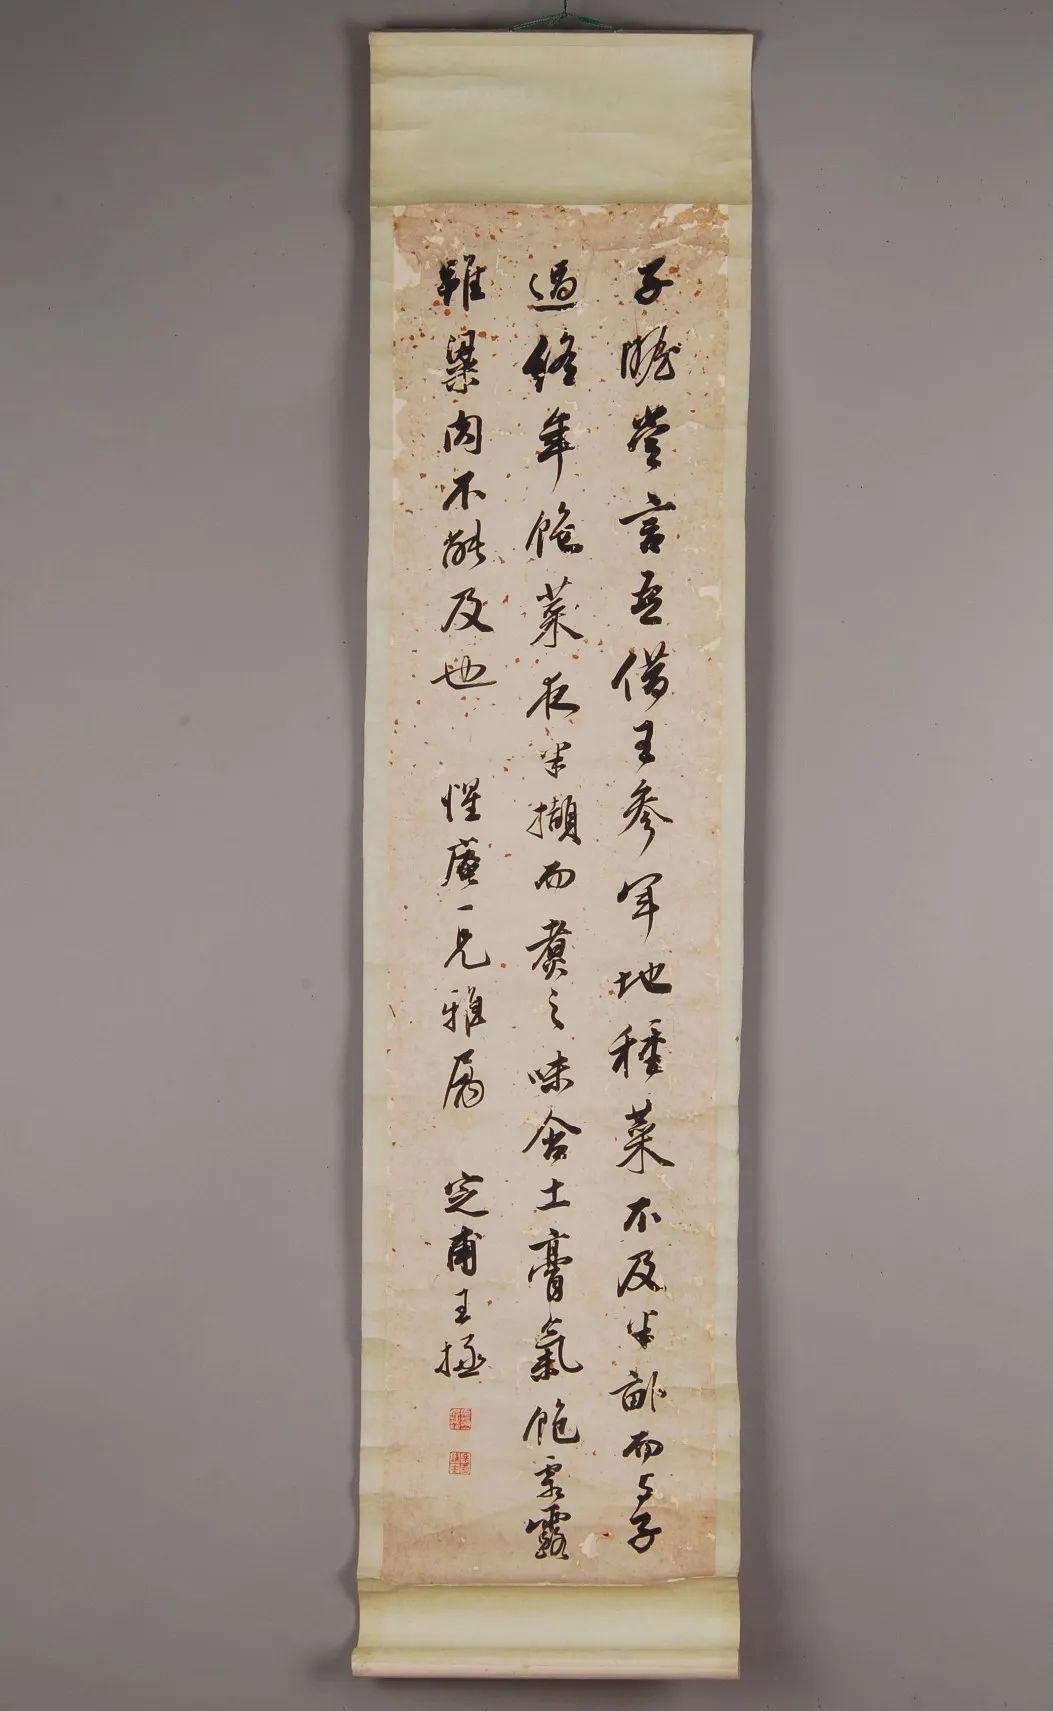 子瞻嘗言吾借王參軍地種菜不及半畝而与子
過終年飽菜夜半擷而煮之味含土膏氣飽霜露
雖粱肉不能及也 惺庵一兄雅屬 定甫王拯